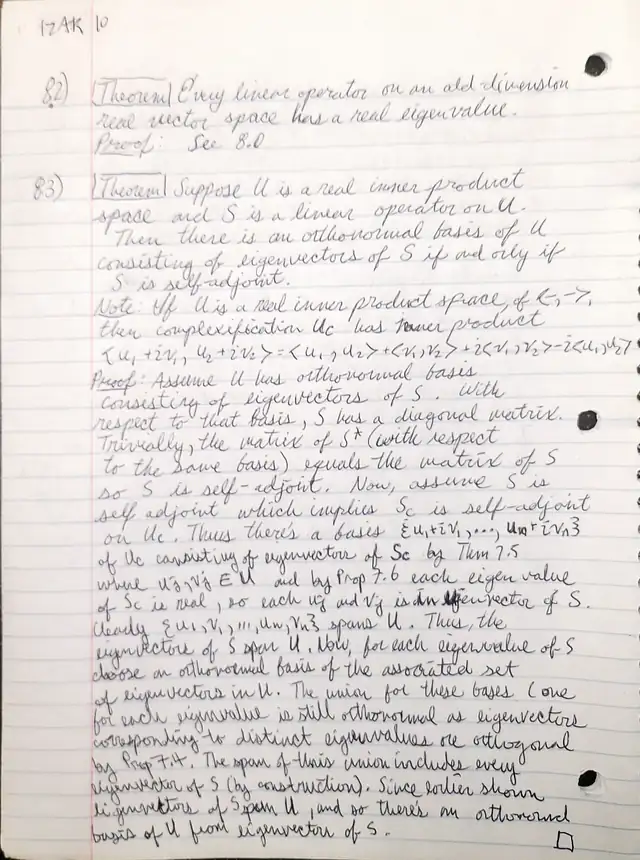 12AK 10
82) Theorem Every linear operator on an odd-dimension
real vector space has a real eigenvalue.
Proof: See 8.0
83) Theorem Suppose U is a real inner product
space and S is a linear operator on U.
Then there is an orthonormal basis of U
consisting of eigenvectors of S if and only if
S is self-adjoint.
Note: If U is a real inner product space, of <-,->,
then complexification Uc has inner product
<u₁+iv₁, u₂+iv₂>=<u₁,u₂>+<v₁,v₂>+i<v₁,v₂>-i<u₁,u₂>
Proof: Assume U has orthonormal basis
consisting of eigenvectors of S. With
respect to that basis, S has a diagonal matrix.
Trivially, the matrix of S* (with respect
to the same basis) equals the matrix of S
so S is self-adjoint. Now, assume S is
self adjoint which implies Sc is self-adjoint
on Uc. Thus there's a basis {u₁+iv₁,..., um+ivn}
of Uc consisting of eigenvector of Sc by Thm 7.5
where uj, vj ∈ U and by Prop 7.6 each eigen value
of Sc is real, so each uj and vj is an eigenvector of S.
Clearly {u₁,v₁,...,um,vn} spans U. Thus, the
eigenvectors of S span U. Now, for each eigenvalue of S
choose an orthonormal basis of the associated set
of eigenvectors in U. The union for these bases (one
for each eigenvalue is still orthonormal as eigenvectors
corresponding to distinct eigenvalues are orthogonal
by Prop 7.4. The span of this union includes every
eigenvector of S (by construction). Since earlier shown
eigenvectors of S span U, and so there's an orthonormal
basis of U from eigenvectors of S. □